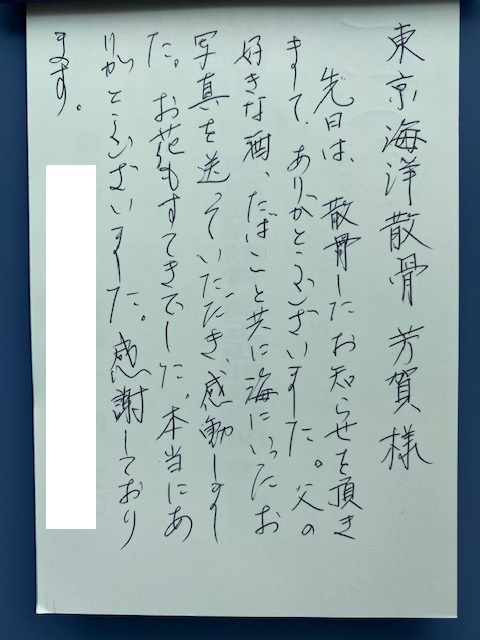 東京海洋散骨 芳賀様
先日は、散骨したお知らせを頂き
まして、ありがとうございました。父の
好きな酒、たばこと共に海にいったお
写真を送っていただき、感動しまし
た。お花もすてきでした。本当にあ
りがとうございました。感謝しており
ます。